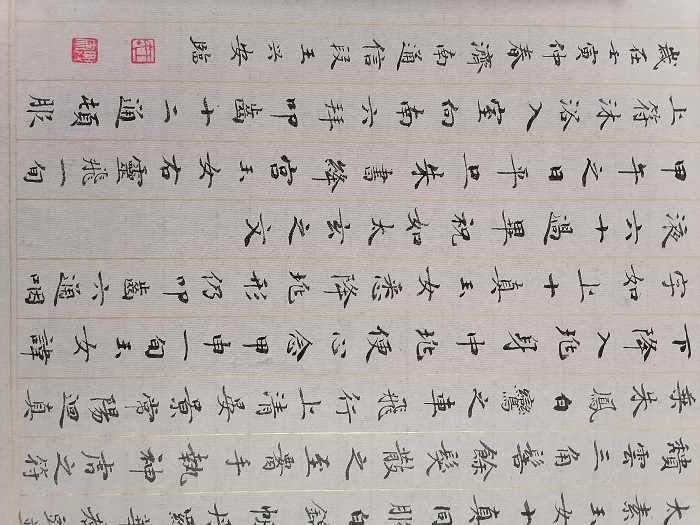 太素玉女十真同服白錦帔丹羅華
頹雲三角髻餘髮散之至腰手執神虎之符
乘朱鳳白鸞之車飛行上清晏景常陽迴真
下降入兆身中兆便心念甲申一旬玉女諱
字如上十真玉女悉降兆形仍叩齒六通咽
液六十過畢祝如太玄之文
甲午之日平旦朱書絳宮玉女右靈飛一旬
上符沐浴入室向南六拜叩齒十二通頓服
歲在壬寅仲春濟南通信段玉兴安臨